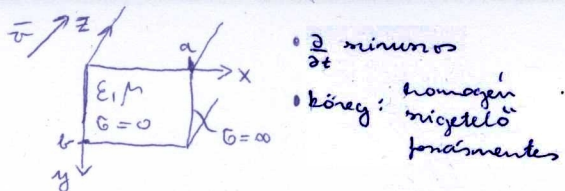 v̄ z
a
x
ε, μ
σ=0
σ=∞
b
y
• ∂/∂t szinuszos
• közeg: homogén
szigetelő
forrásmentes